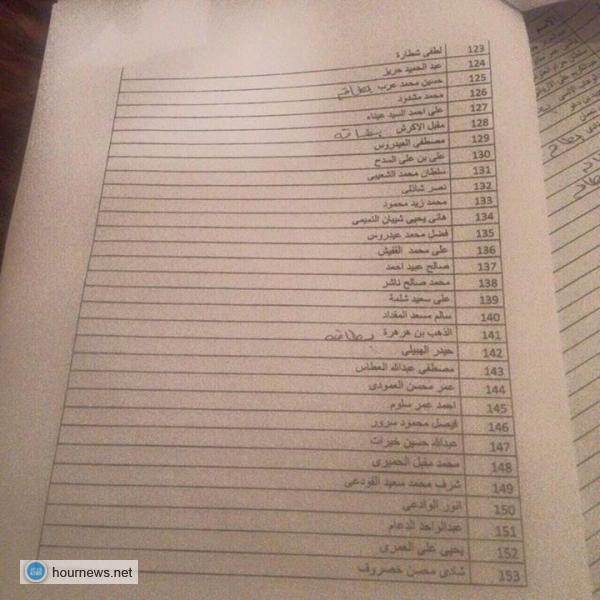 123 لطفى شطارة
124 عبد الحميد حريز
125 حسنين محمد عرب بطاقه
126 محمد مشدود
127 على احمد السيد عيناء
128 مقبل الاكرش بطاقه
129 مصطفى العيدروس
130 على بن على السدح
131 سلطان محمد الشعيبى
132 نصر شاذلى
133 محمد زيد محمود
134 هانى يحيى شيبان النعيمى
135 فضل محمد عيدروس
136 على محمد القفيش
137 صالح عبيد احمد
138 محمد صالح ناشر
139 على سعيد شلمة
140 سالم مسعد المقداد
141 الذهب بن هرهرة بطاقه
142 حيدر الهبيلى
143 مصطفى عبدالله العطاس
144 عمر محسن العمودى
145 احمد عمر سلوم
146 فيصل محمود سرور
147 عبدالله حسين خيرات
148 محمد مقبل الحميرى
149 شرف محمد سعيد الفودعى
150 انور الوادعى
151 عبدالواحد الدعام
152 يحيى على العمرى
153 شادى محسن خصروف
hournews.net